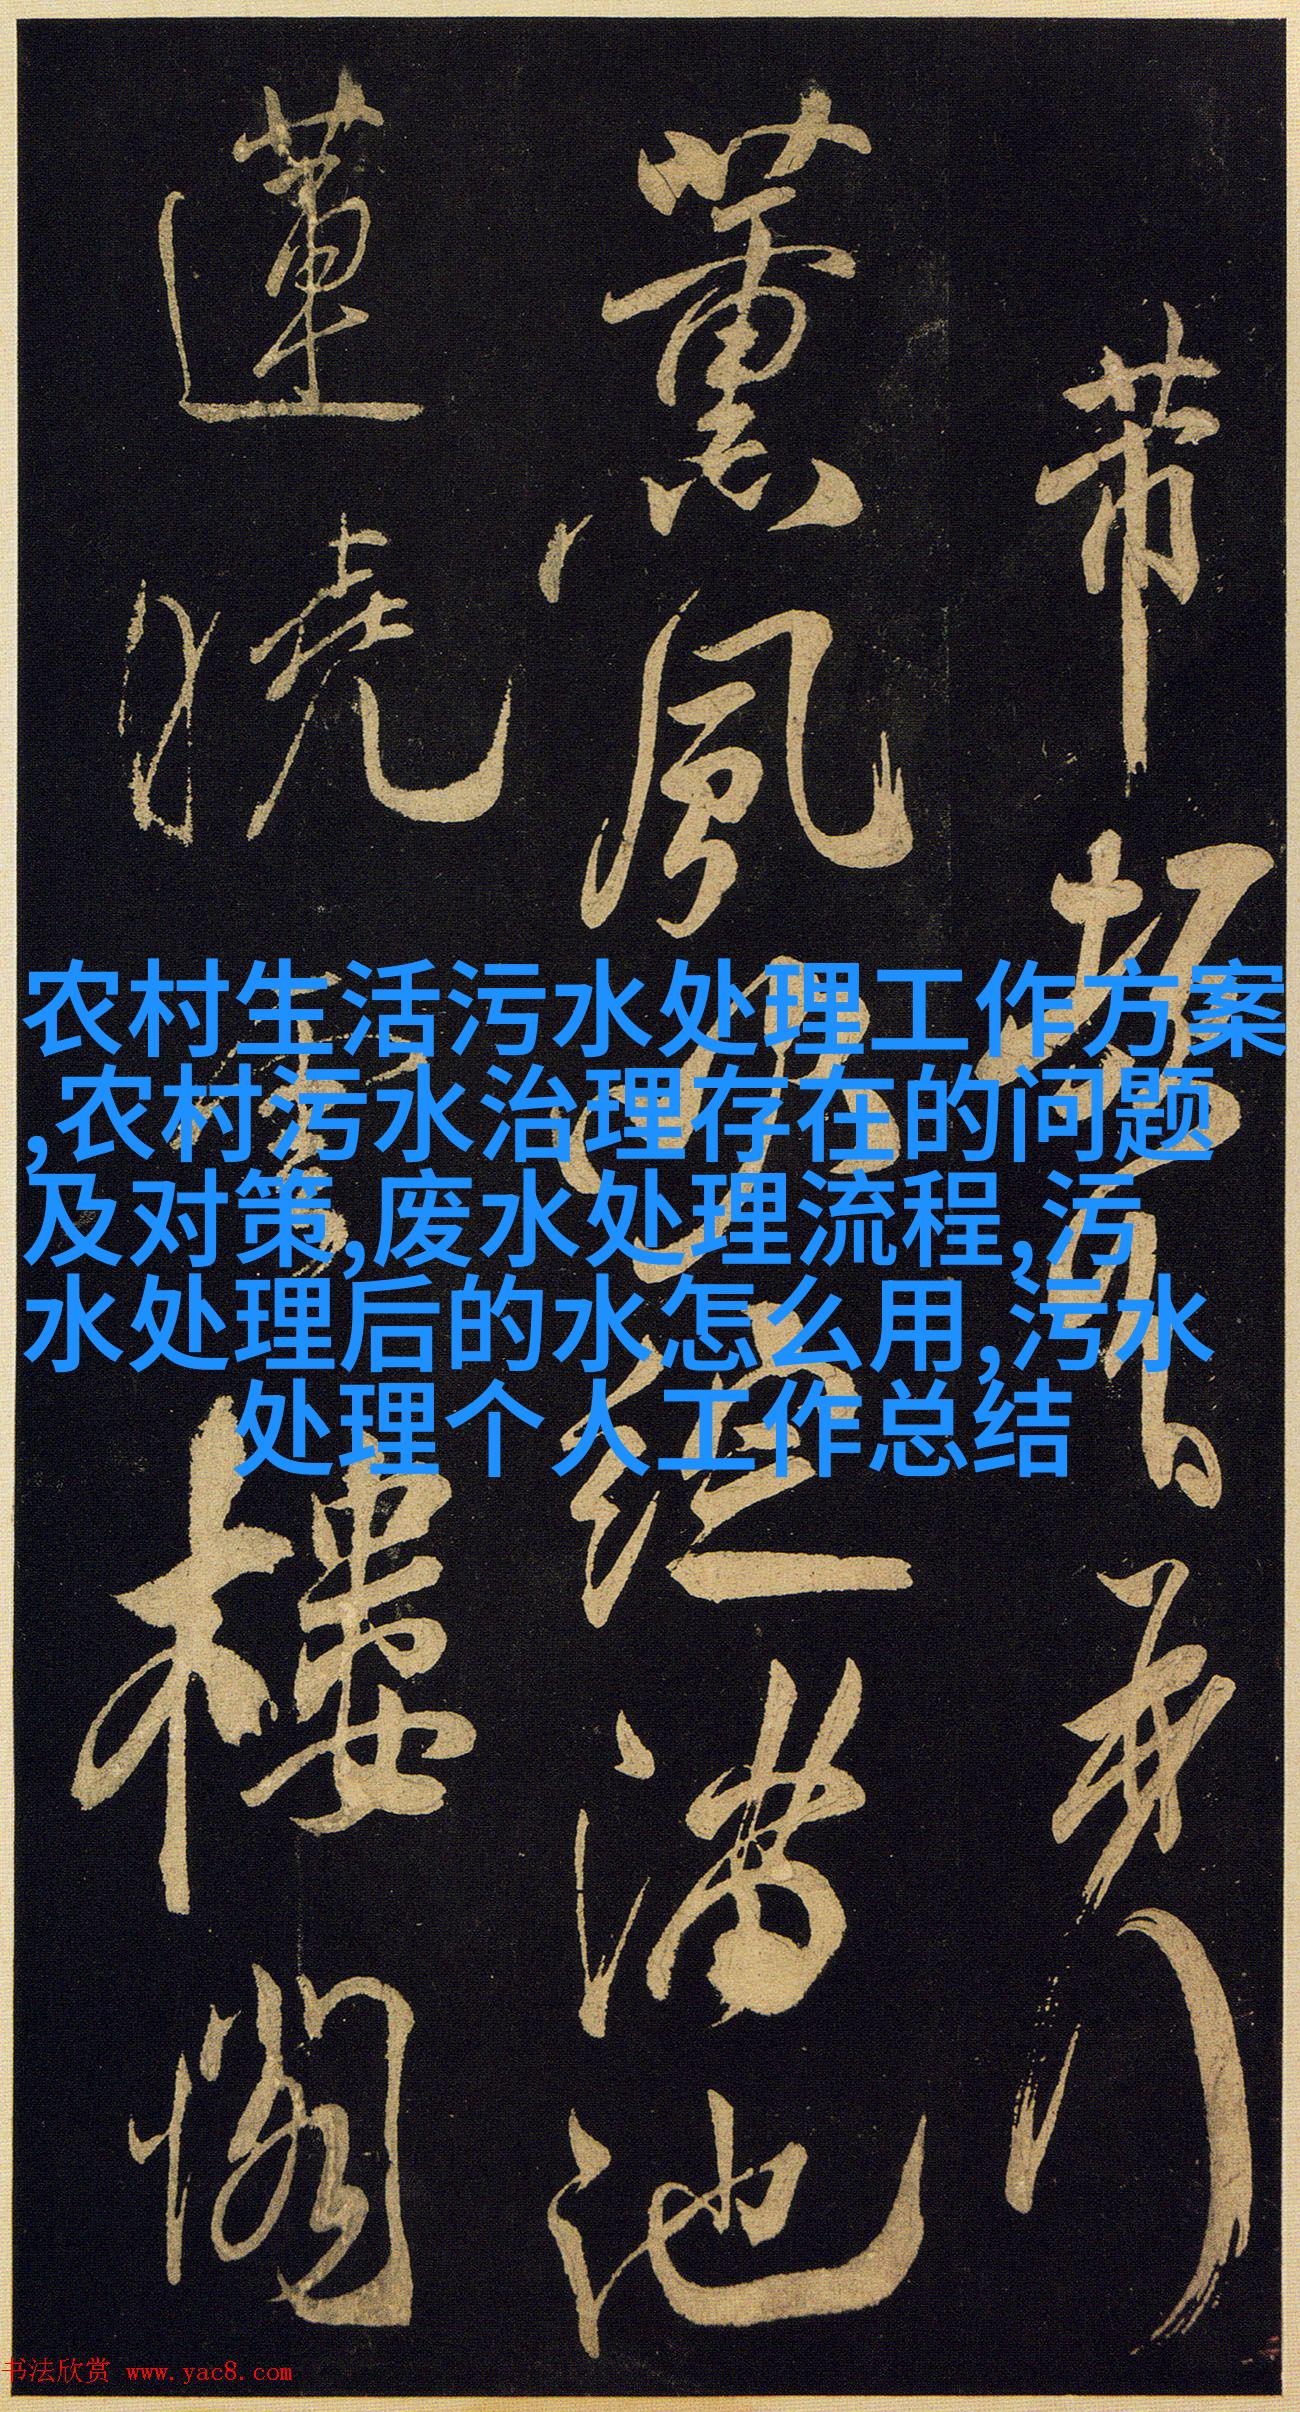 带
薰风
满池
莲晓
楼阁
农村生活污水处理工作方案
,农村污水治理存在的问题
及对策,废水处理流程,污
水处理后的水怎么用,污水
处理个人工作总结
书法欣赏 www.yac8.com